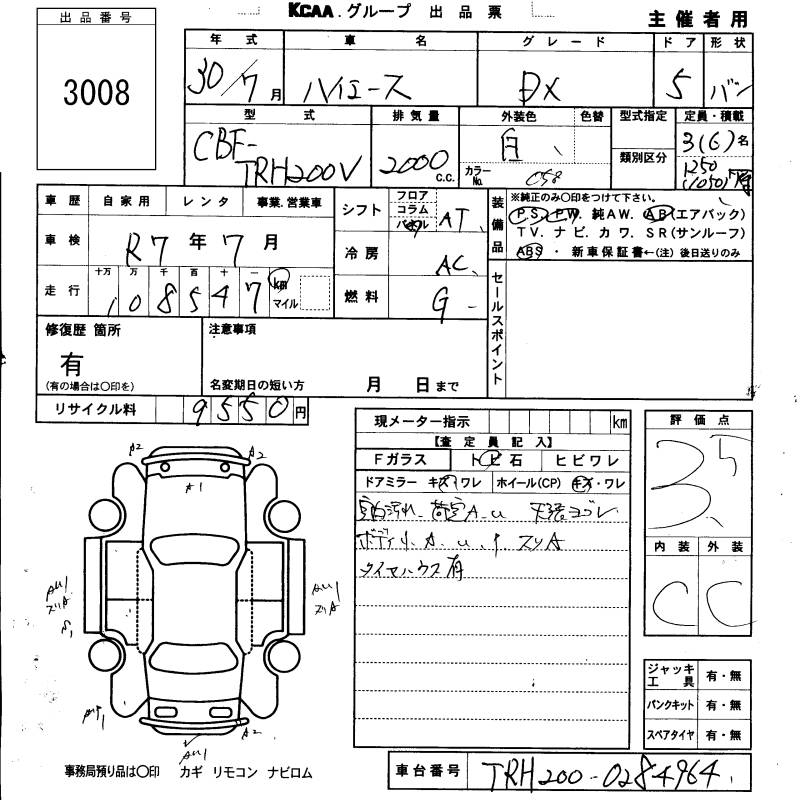 KCAA.グループ 出品票
主催者用
出品番号
3008
年式 車名 グレード ドア 形状
30/7月 ハイエース DX 5 バン
型式 排気量 外装色 色替 型式指定 定員・積載
CBF-TRH200V 2000 c.c. 白 カラーNo. 058 類別区分 3(6)名 1250 (1050)
車歴 自家用 レンタ 事業.営業車
車検 R7年7月
走行 十万 万 千 百 十 一
108547 km マイル
シフト フロア コラム パネル AT
冷房 AC
燃料 G
装備品 ※純正のみ○印をつけて下さい。
PS. PW. 純AW. AB(エアバック)
TV. ナビ. カワ. SR(サンルーフ)
ABS ・ 新車保証書←(注)後日送りのみ
セールスポイント
修復歴 箇所
有
(有の場合は○印を)
注意事項
名変期日の短い方 月 日まで
リサイクル料 9550円
現メーター指示 km
【査定員記入】
Fガラス トビ石 ヒビワレ
ドアミラー キズ・ワレ ホイール(CP) キズ・ワレ
室内汚れ. 荷室A.u 天張ヨゴレ
ボディ A.u. スリA
タイヤハウス有
評価点
3.5
内装 外装
C C
ジャッキ工具 有・無
パンクキット 有・無
スペアタイヤ 有・無
A2
A2
A1
AU1
スリA
S1
AU1
スリA
A2
AU1
事務局預り品は○印 カギ リモコン ナビロム
車台番号 TRH200-0284964